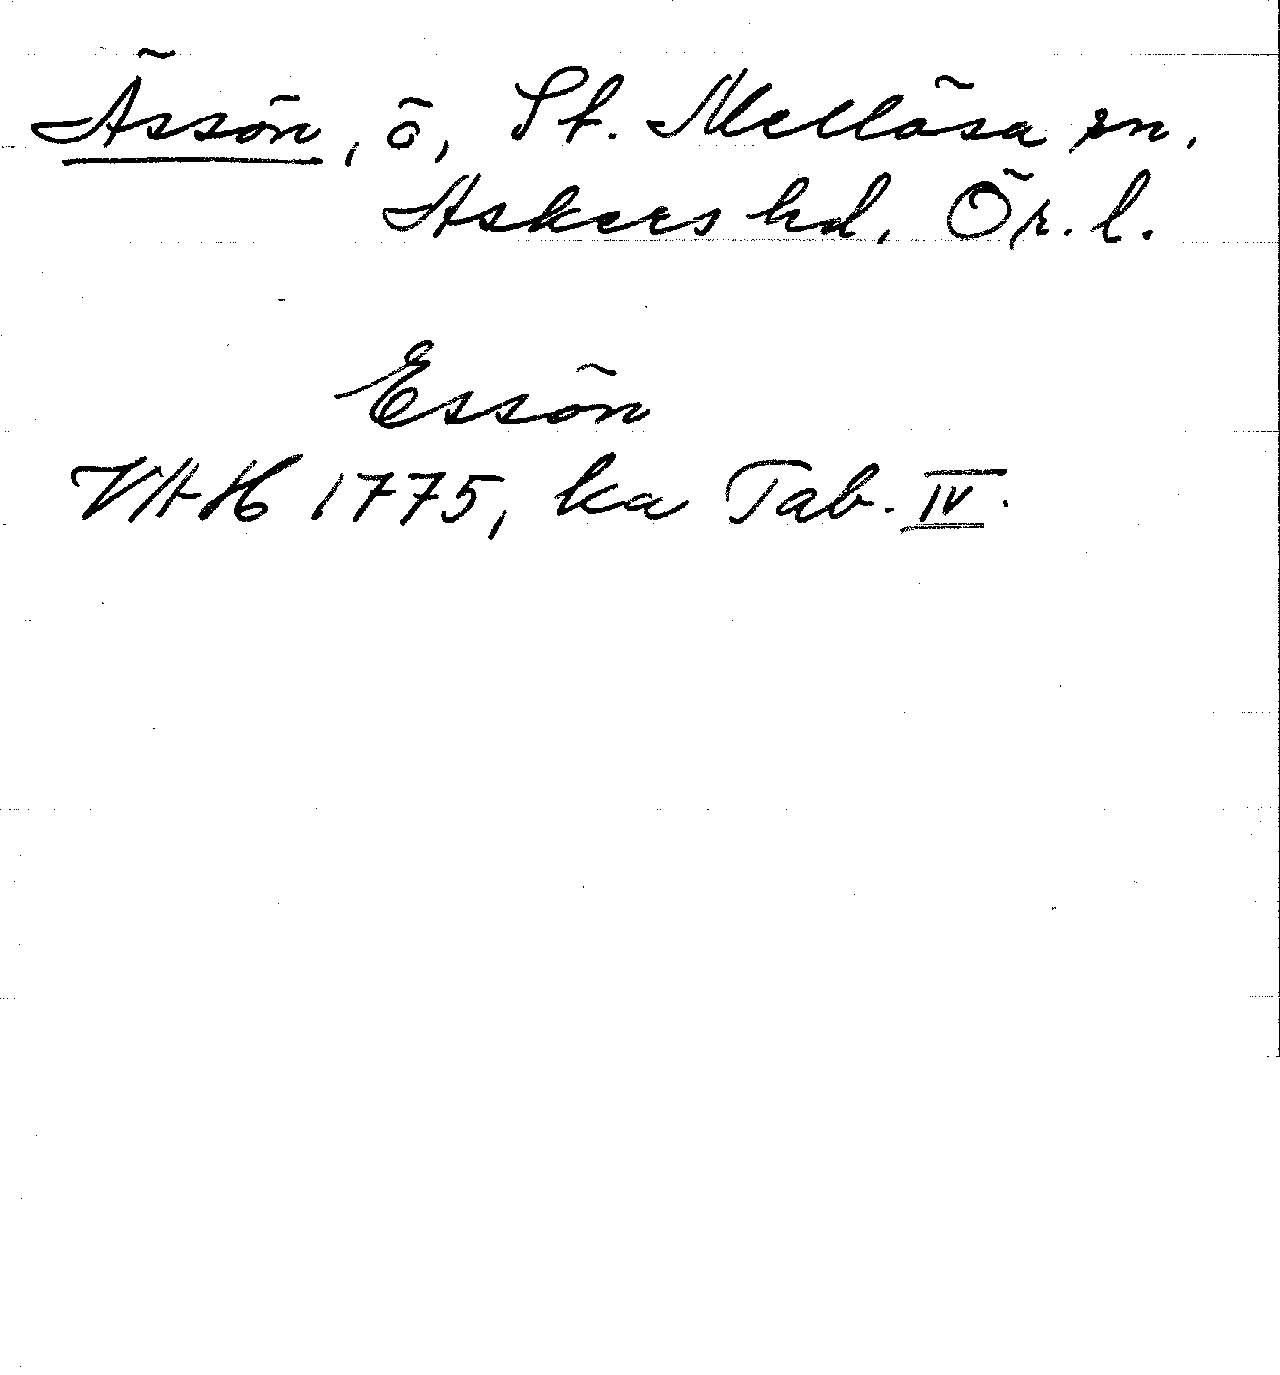 Ässön, ö, St. Mellösa sn.
Askers hd, Ör. l.
Essön
VAH 1775, ka Tab. IV.